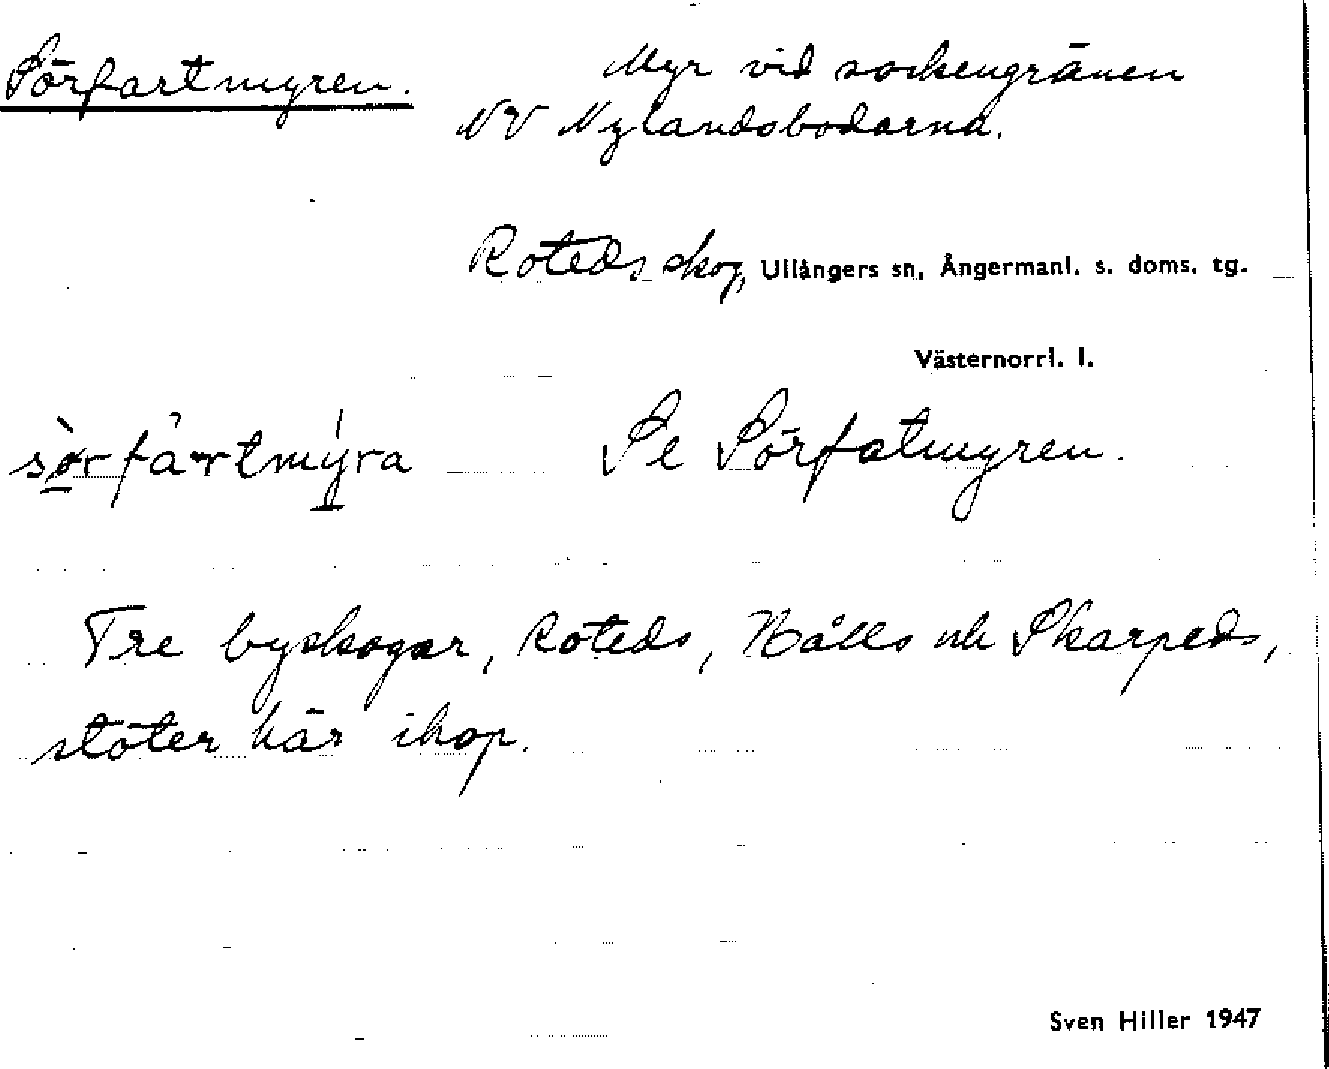 Sörfartmyren.
Myr vid sockengränen
NV Nylandsbodarna.
Roteds skog, Ullångers sn, Ångermanl. s. doms. tg.
Västernorrl. l.
sörfartmýra Se Sörfatmyren.
Tre byskogar, Roteds, Hålls och Skarpeds,
stöter här ihop.
Sven Hiller 1947